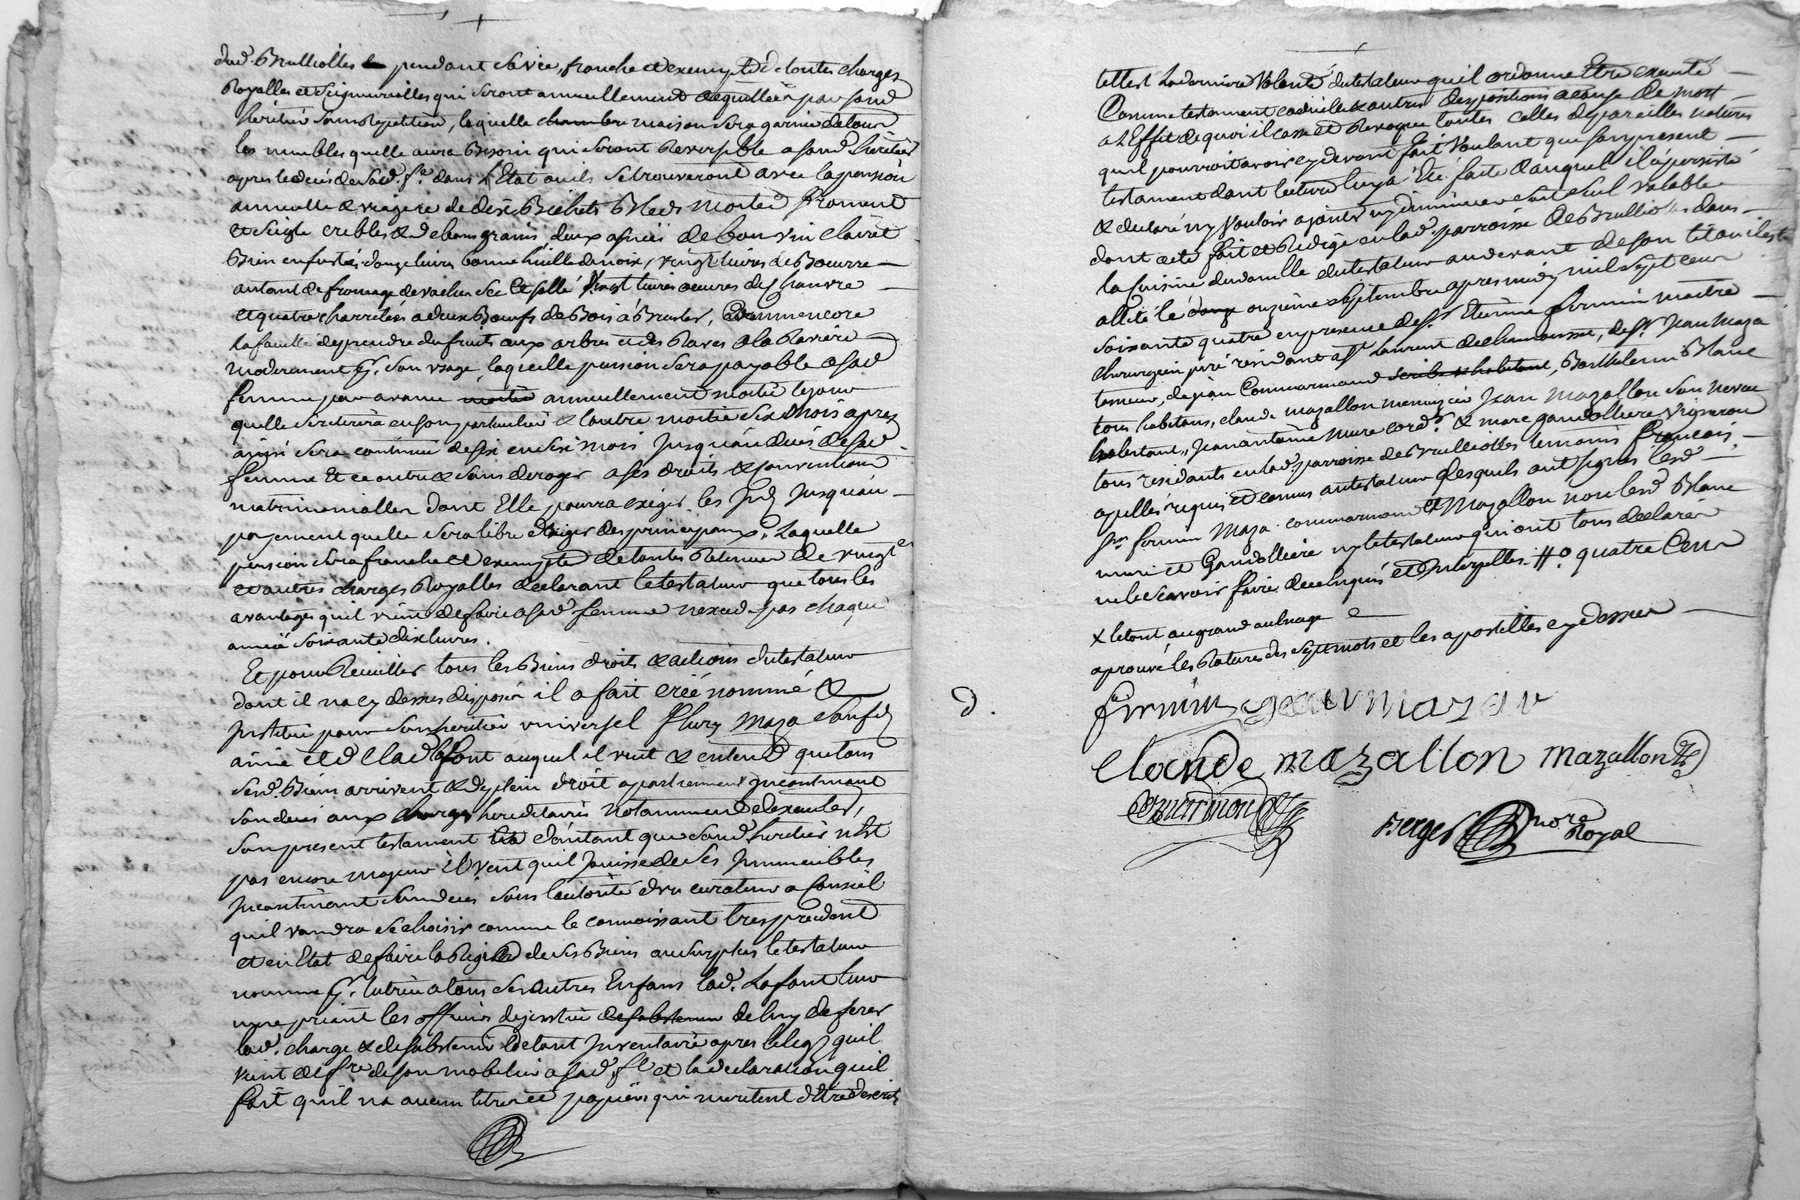 dud. Brulliolles pendant sa vie, franche et exempte de toutes charges
Royalles et seigneurialles qui seront annuellement acquittées par sond
héritier sans repetition, laquelle chambre maison sera garnie de tous
les meubles quelle aura Besoin qui seront Reversible a sond héritier
apres le décés de sad. fe. dans l'Etat ou ils se trouveront avec la pension
annuelle & viagere de dix Bichets Bled moitié froment
et seigle cribles & de bons grains deux asnées de bon vin clairet
Bien enfusté, douze livres bonne huille de noix, vingt livres de Beurre
autant de fromage de vache sec et sallé vingt livres oeuvres de chanvre
et quatre charretées a deux Boeufs de Bois a Brusler, Comme encore
la faculté de prendre du fruits aux arbres et des Raves a la Raviere
moderement pr. son usage, laquelle pension sera payable a sad
femme par avance moitié annuellement moitié le jour
quelle se retirera en son particulier & l'autre moitié six mois apres
ainsi sera continué de six en six mois jusqu'au décés de sad
femme Et ce outre & sans deroger a ses droits & conventions
matrimonialles dont Elle pourra exiger les jusquau
payement quelle sera libre d'exiger des principaux. Laquelle
pension sera franche et exempte de toutes Retenues de vingte
et autres charges Royalles declarant le testateur que tous les
avantages quil vient de faire a sad femme n'excede pas chaque
année soixante dix livres.
Et pour Recuillir tous les Biens droits & actions du testateur
dont il n'a cy dessus disposé il a fait créé nommé &
Institué pour son heritier universel fleury Maza son fils
ainé et d lad Lafont auquel il veut & entend que tous
sesd. Biens arrivent & de plein droit appartiennent incontinant
son deces aux charges hereditaires notamment d'executer
son present testament d'autant que sond heritier n'est
pas encore majeur il veut quil Jouisse de ses Immeubles
incontinant son deces sous l'autorité d'un curateur a conseil
quil voudra se choisir comme le connoissant tres prudent
et en Etat de faire la Regie de ses Biens au surplus le testateur
nomme pr. tutrice a tous ses autres Enfans lad. Lafont leur
mere priant les officiers de justice de luy deferer
lad. charge & de sabstenir de tout Inventaire apres le legs quil
vient de fre. de son mobilier a sad. fe et la declaration quil
fait quil n'a aucun titres et papiers qui meritent d'Etre descrits
telle est la derniere volonté du testateur quil ordonne Etre executé
Comme testament codicile & autres dispositions a cause de mort
a L'Effet de quoi il casse et Revoque toutes celles de pareilles natures
quil pourroit avoir cy devant fait voulant que son present
testament dont lecture luy a Eté faite & auquel il a persisté
& declaré n'y vouloir ajouter ny diminuer soit seul valable
dont acte fait et Redigé en lad. parroisse de Brulliolles dans
la cuisine du domicille du testateur au devant de son lit ou il est
allité le onzieme septembre apres midy mil sept cent
soixante quatre en presence de sr. Etienne firmin maitre
chirurgien juré residant a st Laurent de chamousset, de sr. Jean Maza
tanneur, de jean Commarmond Barthelemi Blanc
tous habitans, claude mazallon menuzier Jean Mazallon son neveu
habitant, Jean antoine Mure cordr. & marc gandilliere vigneron
tous residants en lad. parroisse de Brulliolles temoins francais
apellés requis et connus au testateur desquels ont signés lesd
srs. firmin Maza commarmond et Mazallon non lesd Blanc
mure et Gandilliere ny le testateur qui ont tous declarer
ne le scavoir faire de ce enquis et Interpelles. quatre Cent
x le tout au grand aulnage
aprouvé les Ratures des sept mots et les apostilles cy dessus
firmin jean maza
D.
Claude mazallon mazallon
Commarmond
Berger nore Royal